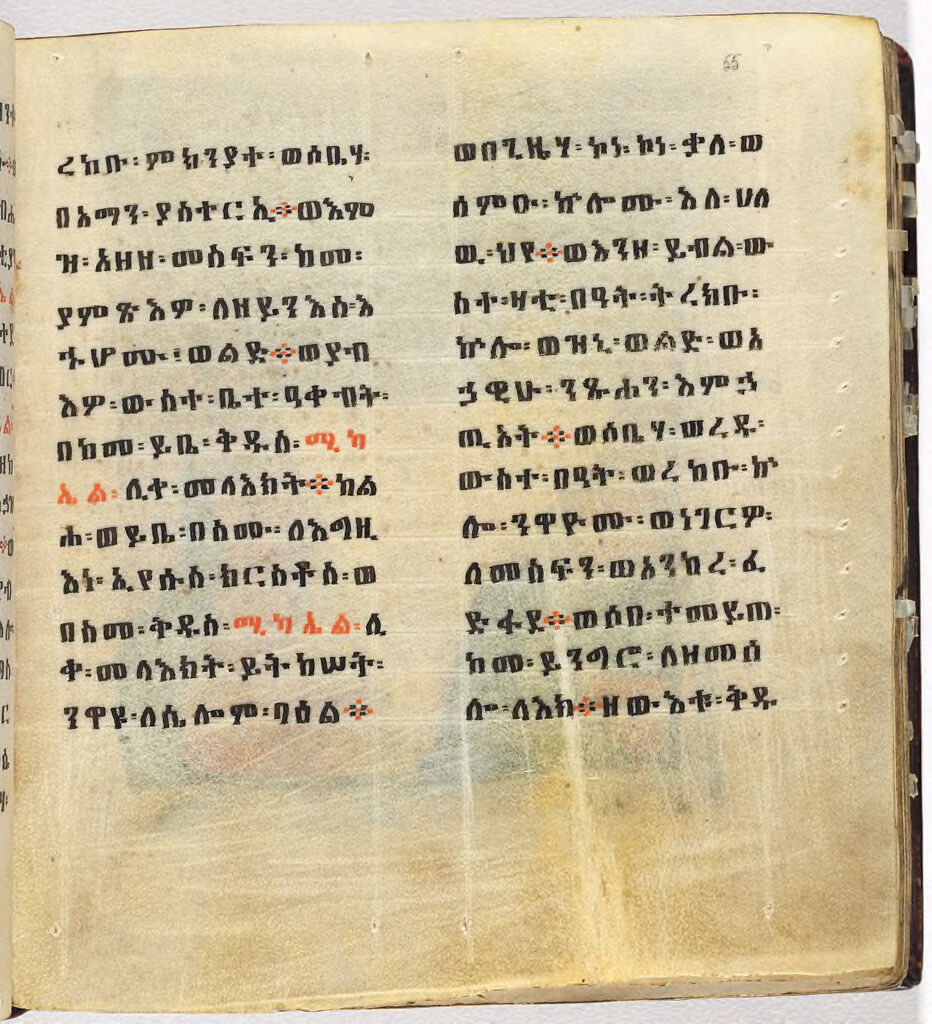 55
ረከቡ፡ምክንያተ፡ወሰቢሃ፡
በአማን፡ያስተርኢ፨ወእም
ዝ፡አዘዘ፡መስፍን፡ከመ፡
ያምጽእዎ፡ለዘይን እስ፡እ
ኁሆሙ፡ወልድ፨ወያብ
እዎ፡ውስተ፡ቤተ፡ዓቀብት፡
በከመ፡ይቤ፡ቅዱስ፡ሚካ
ኤል፡ሊቀ፡መላእክት፨ከል
ሐ፡ወይቤ፡በስሙ፡ለእግዚ
እነ፡ኢየሱስ፡ክርስቶስ፡ወ
በስመ፡ቅዱስ፡ሚካኤል፡ሊ
ቀ፡መላእክት፡ይትከሠት፡
ንዋዩ፡ለሲሎም፡ባዕል፨
ወበጊዜሃ፡ኮነ፡ቃለ፡ወ
ሰምዑ፡ኵሎሙ፡እለ፡ሀለ
ዉ፡ህየ፨ወእንዘ፡ይብል፡ው
ስተ፡ዛቲ፡በዓት፡ትረክቡ፡
ኵሎ፡ወዝኒ፡ወልድ፡ወአ
ኃዊሁ፡ንጹሐን፡እምኃ
ጢአት፨ወሰቢሃ፡ወረዱ፡
ውስተ፡በዓት፡ወረከቡ፡ኵ
ሎ፡ንዋዮሙ፡ወነገርዎ፡
ለመስፍን፡ወአንከረ፡ፈ
ድፋደ፨ወሰበ፡ተመይጠ፡
ከመ፡ይንግሮ፡ለዘመሰ
ሎ፡ለእክ፨ዘውእቱ፡ቅዱ